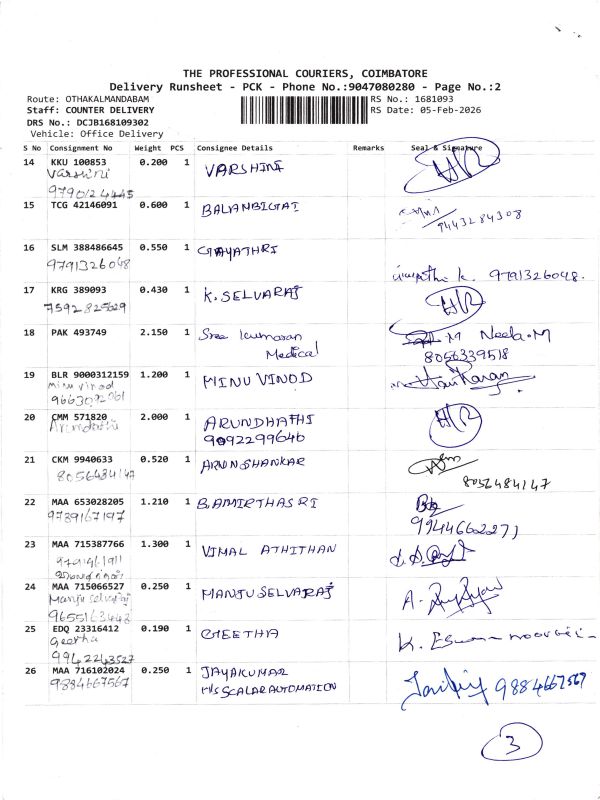 THE PROFESSIONAL COURIERS, COIMBATORE
Delivery Runsheet - PCK - Phone No.:9047080280 - Page No.:2
Route: OTHAKALMANDABAM
RS No.: 1681093
Staff: COUNTER DELIVERY
RS Date: 05-Feb-2026
DRS No.: DCJB168109302
Vehicle: Office Delivery
S No Consignment No Weight PCS Consignee Details Remarks Seal & Signature
14 KKU 100853 0.200 1 VARSHINI
Varshini
9790124445
15 TCG 42146091 0.600 1 BALANBIGAI
9443284308
16 SLM 388486645 0.550 1 GAYATHRI
9791326048
k. 9791326048.
17 KRG 389093 0.430 1 K. SELVARAJ
7592825629
18 PAK 493749 2.150 1 Sree kumaran
Medical
M Neela.M
8056339518
19 BLR 9000312159 1.200 1 MINU VINOD
minu vinod
9663092061
20 CMM 571820 2.000 1 ARUNDHATHI
9092299646
21 CKM 9940633 0.520 1 ARUNSHANKAR
8056484147
8056484147
22 MAA 653028205 1.210 1 B.AMIRTHASRI
9789167197
9944662271
23 MAA 715387766 1.300 1 VIMAL ATHITHAN
24 MAA 715066527 0.250 1 MANJU SELVARAJ
Manju selvaraj
9655163448
25 EDQ 23316412 0.190 1 GEETHA
Geetha
9942243527
26 MAA 716102024 0.250 1 JAYAKUMAR
9884667567
M/s SCALAR AUTOMATION
9884667567
3